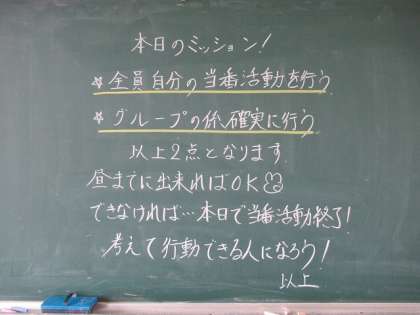 本日のミッション!
☆全員自分の当番活動を行う
☆グループの係確実に行う
以上2点となります
昼までに出来ればOK
できなければ…本日で当番活動終了!
考えて行動できる人になろう!
以上